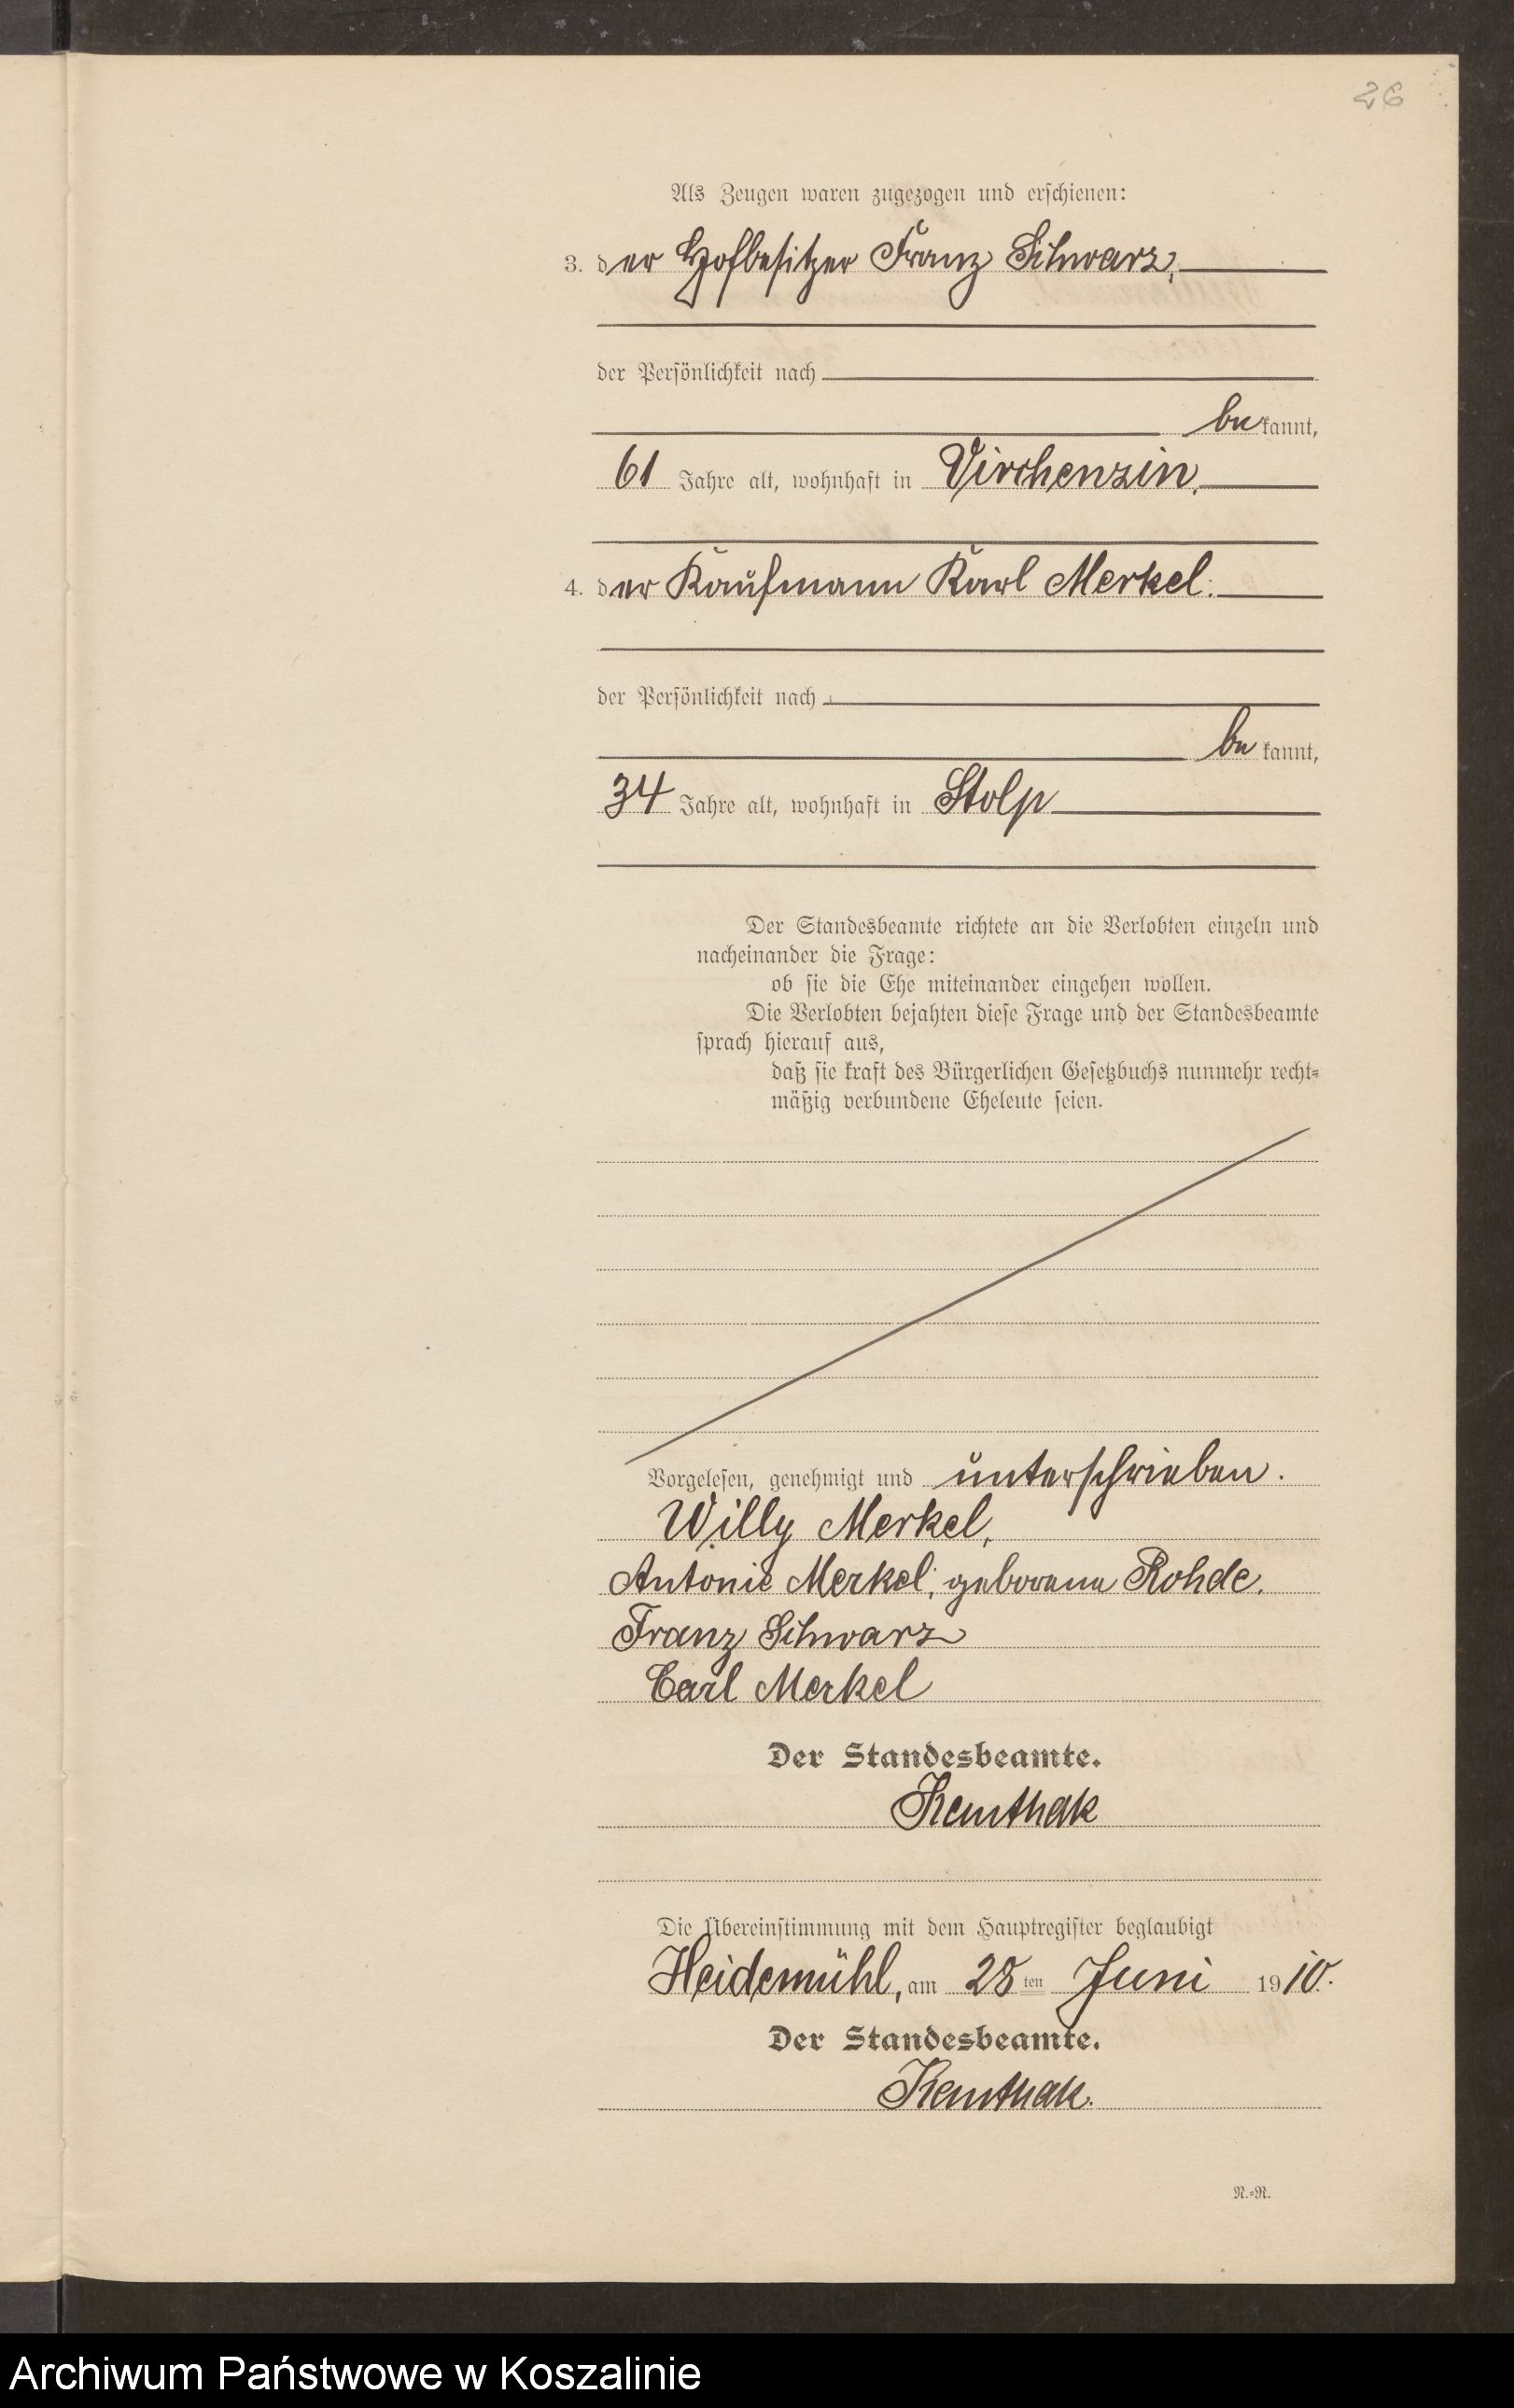 26
Als Zeugen waren zugezogen und erschienen:
3. der Hofbesitzer Franz Schwarz,
der Persönlichkeit nach
bekannt,
61 Jahre alt, wohnhaft in Virchenzin,
4. der Kaufmann Karl Merkel.
der Persönlichkeit nach
bekannt,
34 Jahre alt, wohnhaft in Stolp
Der Standesbeamte richtete an die Verlobten einzeln und
nacheinander die Frage:
ob sie die Ehe miteinander eingehen wollen.
Die Verlobten bejahten diese Frage und der Standesbeamte
sprach hierauf aus,
daß sie kraft des Bürgerlichen Gesetzbuchs nunmehr recht-
mäßig verbundene Eheleute seien.
Vorgelesen, genehmigt und unterschrieben.
Willy Merkel,
Antonie Merkel, geborene Rohde.
Franz Schwarz
Carl Merkel
Der Standesbeamte.
Kemthak
Die Übereinstimmung mit dem Hauptregister beglaubigt
Heidemühl, am 28ten Juni 1910.
Der Standesbeamte.
Kemthak.
N.-R.
Archiwum Państwowe w Koszalinie